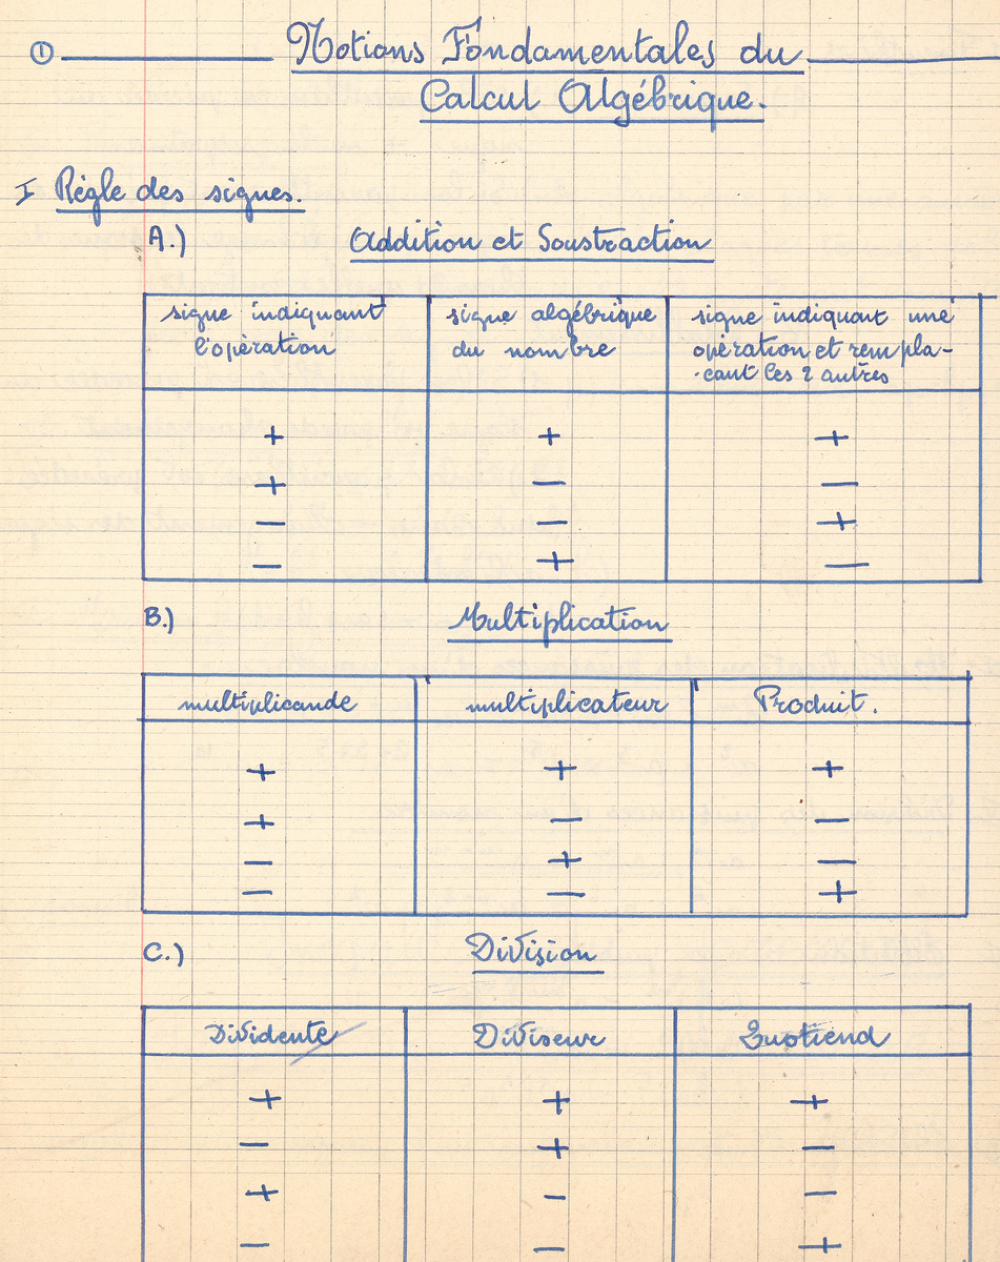 ① Notions Fondamentales du
Calcul Algébrique.
I Règle des signes.
A.) Addition et Soustraction
signe indiquant l'opération | signe algébrique du nombre | signe indiquant une opération et rempla-çant les 2 autres
+ + +
+ — —
— — +
— + —
B.) Multiplication
multiplicande multiplicateur Produit.
+ + +
+ — —
— + —
— — +
C.) Division
Dividente Diviseur Quotiend
+ + +
— + —
+ — —
— — +